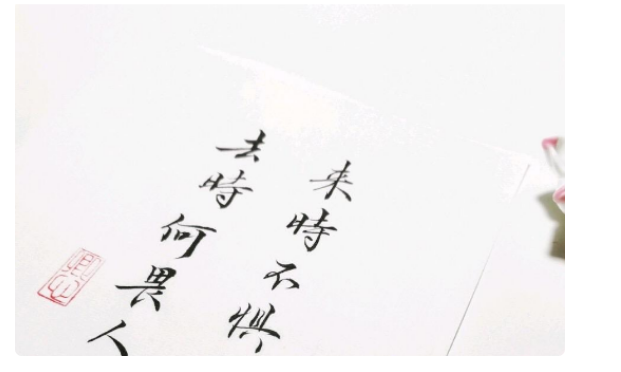 来時不惧
去時何畏人